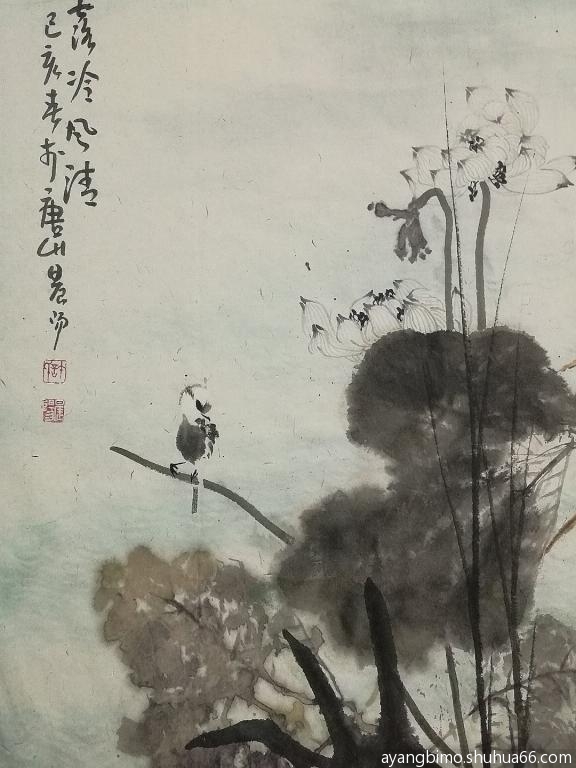 露冷风清
己亥春於唐山
ayangbimo.shuhua66.com